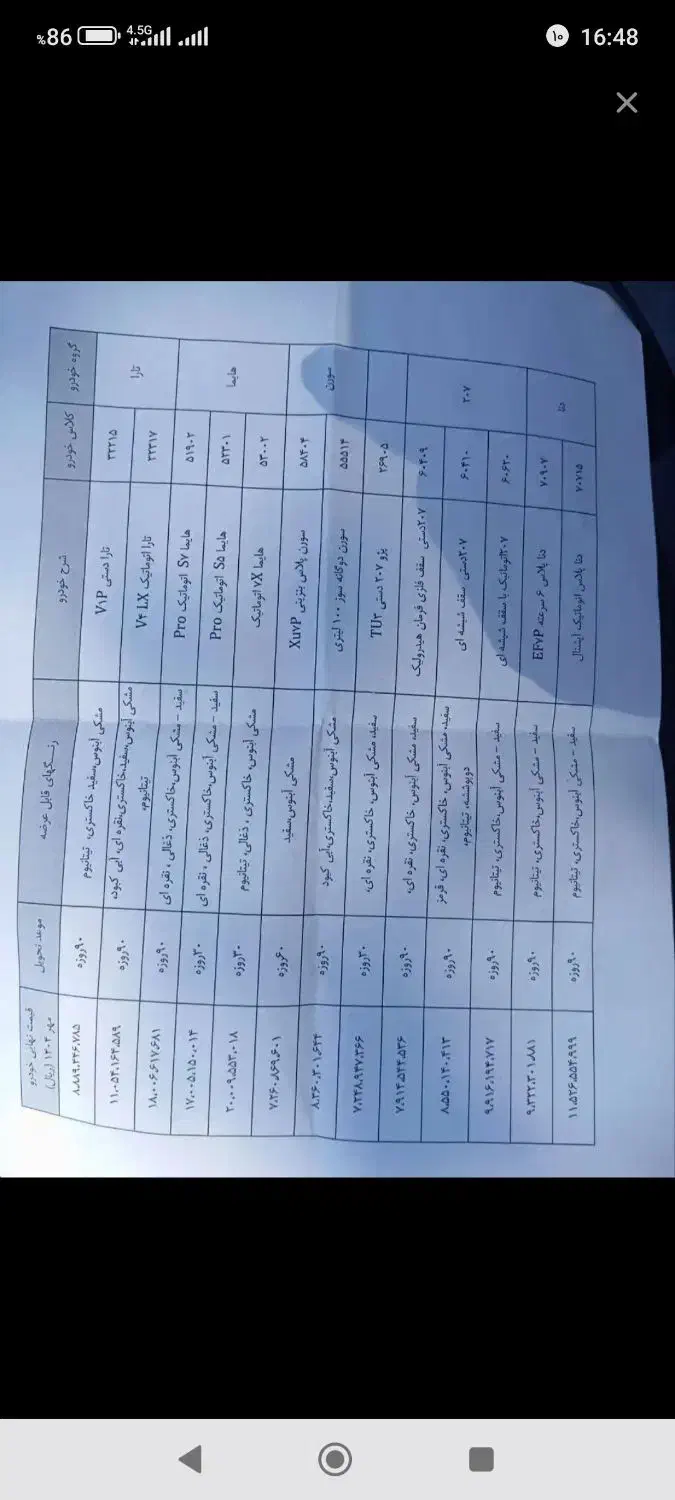 %86 4.5G ۱۰ 16:48
گروه خودرو کلاس خودرو شرح خودرو رنگهای قابل عرضه موعد تحویل قیمت نهایی خودرو
مهر ۱۴۰۴ (ریال)
تارا ۲۲۲۱۵ تارا دستی V۱P مشکی آبنوس،سفید خاکستری، تیتانیوم ۹۰روزه ۸.۸۸۹.۲۲۶.۷۸۵
۲۲۲۱۷ تارا اتوماتیک V۴ LX مشکی آبنوس،سفید،خاکستری،نقره ای، آبی کبود،
تیتانیوم، ۹۰روزه ۱۱.۰۵۲.۱۶۴.۵۸۹
هایما ۵۱۹۰۲ هایما S۷ اتوماتیک Pro سفید – مشکی آبنوس،خاکستری، ذغالی ، نقره ای ۹۰روزه ۱۸.۰۰۶.۶۱۷.۶۸۱
۵۲۲۰۱ هایما S۵ اتوماتیک Pro سفید – مشکی آبنوس،خاکستری، ذغالی ، نقره ای ۳۰روزه ۱۷.۰۰۵.۱۵۰.۰۱۴
۵۳۰۰۲ هایما ۷X اتوماتیک مشکی آبنوس، خاکستری ، ذغالی، تیتانیوم ۳۰روزه ۲۰.۰۰۹.۵۵۲.۰۱۸
سورن ۵۸۴۰۴ سورن پلاس بنزینی Xu۷P مشکی آبنوس،سفید ۶۰روزه ۷.۲۶۰.۸۶۹.۶۰۱
۵۵۵۱۴ سورن دوگانه سوز ۱۰۰ لیتری مشکی آبنوس،سفید،خاکستری،آبی کبود ۹۰روزه ۸.۲۶۰.۲۰۱.۶۴۴
۲۶۹۰۵ پژو ۲۰۷ دستی TU۳ سفید، مشکی آبنوس، خاکستری، نقره ای، ۳۰روزه ۷.۲۴۸.۹۴۷.۲۶۶
۲۰۷ ۶۰۴۰۹ ۲۰۷دستی سقف فلزی فرمان هیدرولیک سفید، مشکی آبنوس، خاکستری، نقره ای، ۹۰روزه ۷.۹۱۴.۵۴۴.۵۳۶
۶۰۴۱۰ ۲۰۷دستی سقف شیشه ای سفید، مشکی آبنوس، خاکستری، نقره ای، قرمز
دوپوششه، تیتانیوم، ۹۰روزه ۸.۵۵۰.۱۴۰.۴۱۳
۶۰۶۲۰ ۲۰۷اتوماتیک با سقف شیشه ای سفید – مشکی آبنوس،خاکستری، تیتانیوم ۹۰روزه ۹.۹۱۶.۱۹۴.۷۱۷
دنا ۷۰۹۰۷ دنا پلاس ۶ سرعته EF۷P سفید – مشکی آبنوس،خاکستری، تیتانیوم ۹۰روزه ۹.۳۲۲.۳۰۱.۸۸۱
۷۰۷۱۵ دنا پلاس اتوماتیک آپشنال سفید – مشکی آبنوس،خاکستری، تیتانیوم ۹۰روزه ۱۱.۵۲۶.۵۵۴.۹۹۹